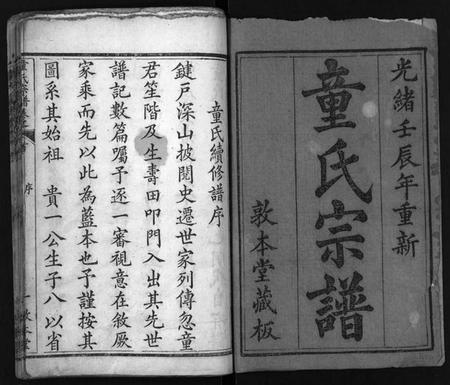 光緒壬辰年重新
童氏宗譜
敦本堂藏板
童氏續修譜序
鍵戸深山披閱史遷世家列傳忽童
君笙階及生壽田叩門入出其先世
譜記數篇囑予逐一審視意在敘厥
家乘而先以此為藍本也予謹按其
圖系其始祖 貴一公生子八以省
序
一